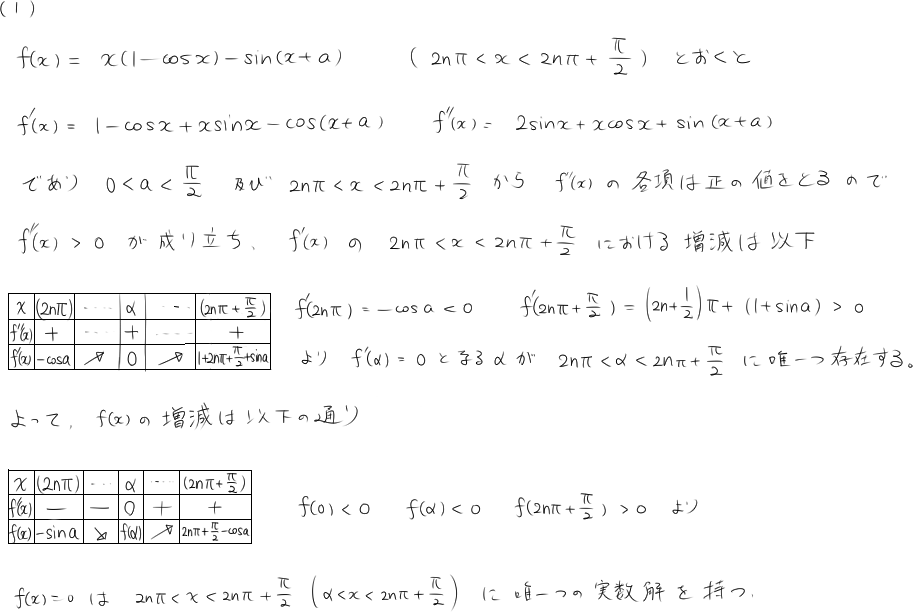 (1)
f(x) = x(1-cosx)-sin(x+a)  (2nπ < x < 2nπ + π/2) とおくと
f'(x) = 1-cosx+xsinx-cos(x+a)  f''(x) = 2sinx+xcosx+sin(x+a)
であり 0<a<π/2 及び 2nπ<x<2nπ+π/2 から f''(x) の各項は正の値をとるので
f''(x) > 0 が成り立ち、f'(x) の 2nπ<x<2nπ+π/2 における増減は以下
x (2nπ) ---- α --- (2nπ+π/2)
f''(x) + ---- + ---- +
f'(x) -cosa ↗ 0 ↗ 1+2nπ+π/2+sina
f'(2nπ) = -cosa < 0  f'(2nπ+π/2) = (2n+1/2)π + (1+sina) > 0
より f'(α) = 0 となる α が 2nπ<α<2nπ+π/2 に唯一つ存在する。
よって、f(x) の増減は以下の通り
x (2nπ) --- α ---- (2nπ+π/2)
f'(x) - - 0 + +
f(x) -sina ↘ f(α) ↗ 2nπ+π/2-cosa
f(0)<0  f(α)<0  f(2nπ+π/2) > 0 より
f(x)=0 は 2nπ<x<2nπ+π/2 (α<x<2nπ+π/2) に唯一つの実数解を持つ.